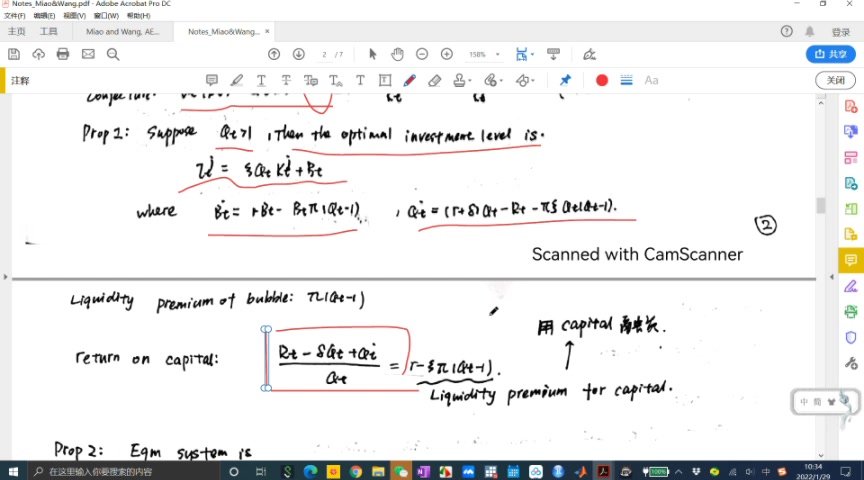 Notes_Miao&Wang.pdf - Adobe Acrobat Pro DC
文件(F) 编辑(E) 视图(V) 窗口(W) 帮助(H)
主页 工具 Miao and Wang, AE... Notes_Miao&Wang... × 登录
2 / 7 158% 共享
注释 Aa 关闭
Prop 1: Suppose Qt>1, Then the optimal investment level is.
It^j = ξQt Kt^j + Bt
where Ḃt = rBt - Btπ(Qt-1), Q̇t = (r+δ)Qt - Rt - πξQt(Qt-1).
②
Scanned with CamScanner
Liquidity premium of bubble: π(Qt-1)
用 capital 融资.
return on capital: (Rt - δQt + Q̇t) / Qt = r - ξπ(Qt-1).
Liquidity premium for capital.
中 简
Prop 2: Eqm system is
在这里输入你要搜索的内容
100%
中
10:34
2022/1/29